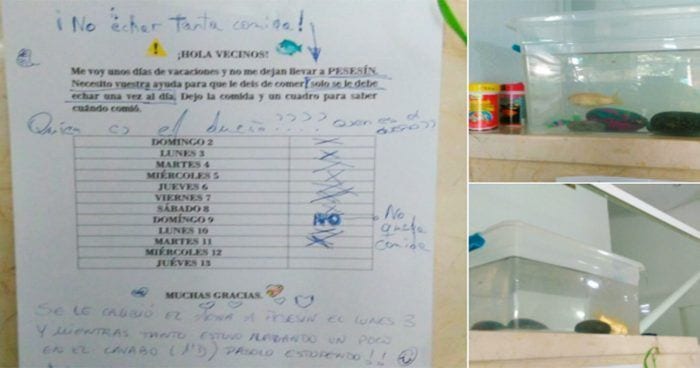 ¡No echar tanta comida!
¡HOLA VECINOS!
Me voy unos días de vacaciones y no me dejan llevar a PESESÍN.
Necesito vuestra ayuda para que le deis de comer, solo se le debe
echar una vez al día. Dejo la comida y un cuadro para saber
cuándo comió.
Quien es el dueño????
DOMINGO 2 X
LUNES 3 X
MARTES 4 X
MIÉRCOLES 5 X
JUEVES 6 X
VIERNES 7 X
SÁBADO 8 X
DOMÍNGO 9 NO No queda comida
LUNES 10 X
MARTES 11 X
MIÉRCOLES 12
JUÉVES 13
MUCHAS GRACIAS.
SE LE CAMBIÓ EL AGUA A PESESIN EL LUNES 3
Y MIENTRAS TANTO ESTUVO NADANDO UN POCO
EN EL LAVABO (1ºD) PASOLO ESTUPENDO!!